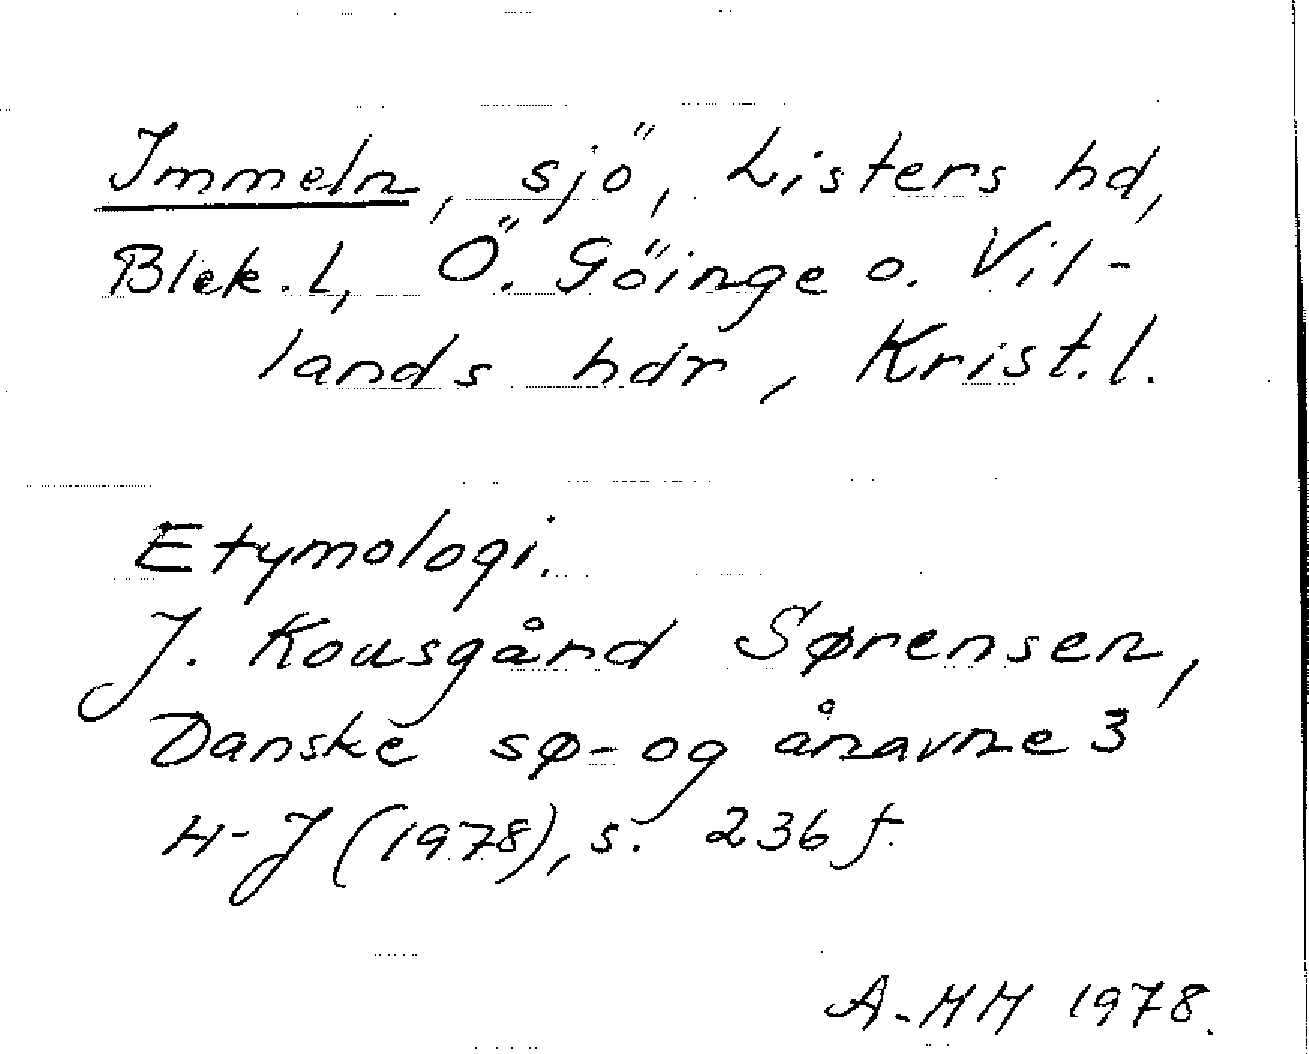 Immeln, sjö, Listers hd,
Blek. l, Ö. Göinge o. Vil-
lands hdr, Krist. l.
Etymologi.
J. Kousgård Sørensen,
Danske sø- og ånavne 3
H-J (1978), s. 236 f.
A-MM 1978.